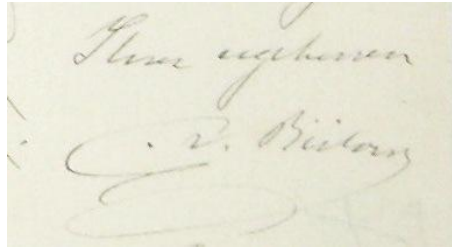 Ihres ergebenen
v. Bülow